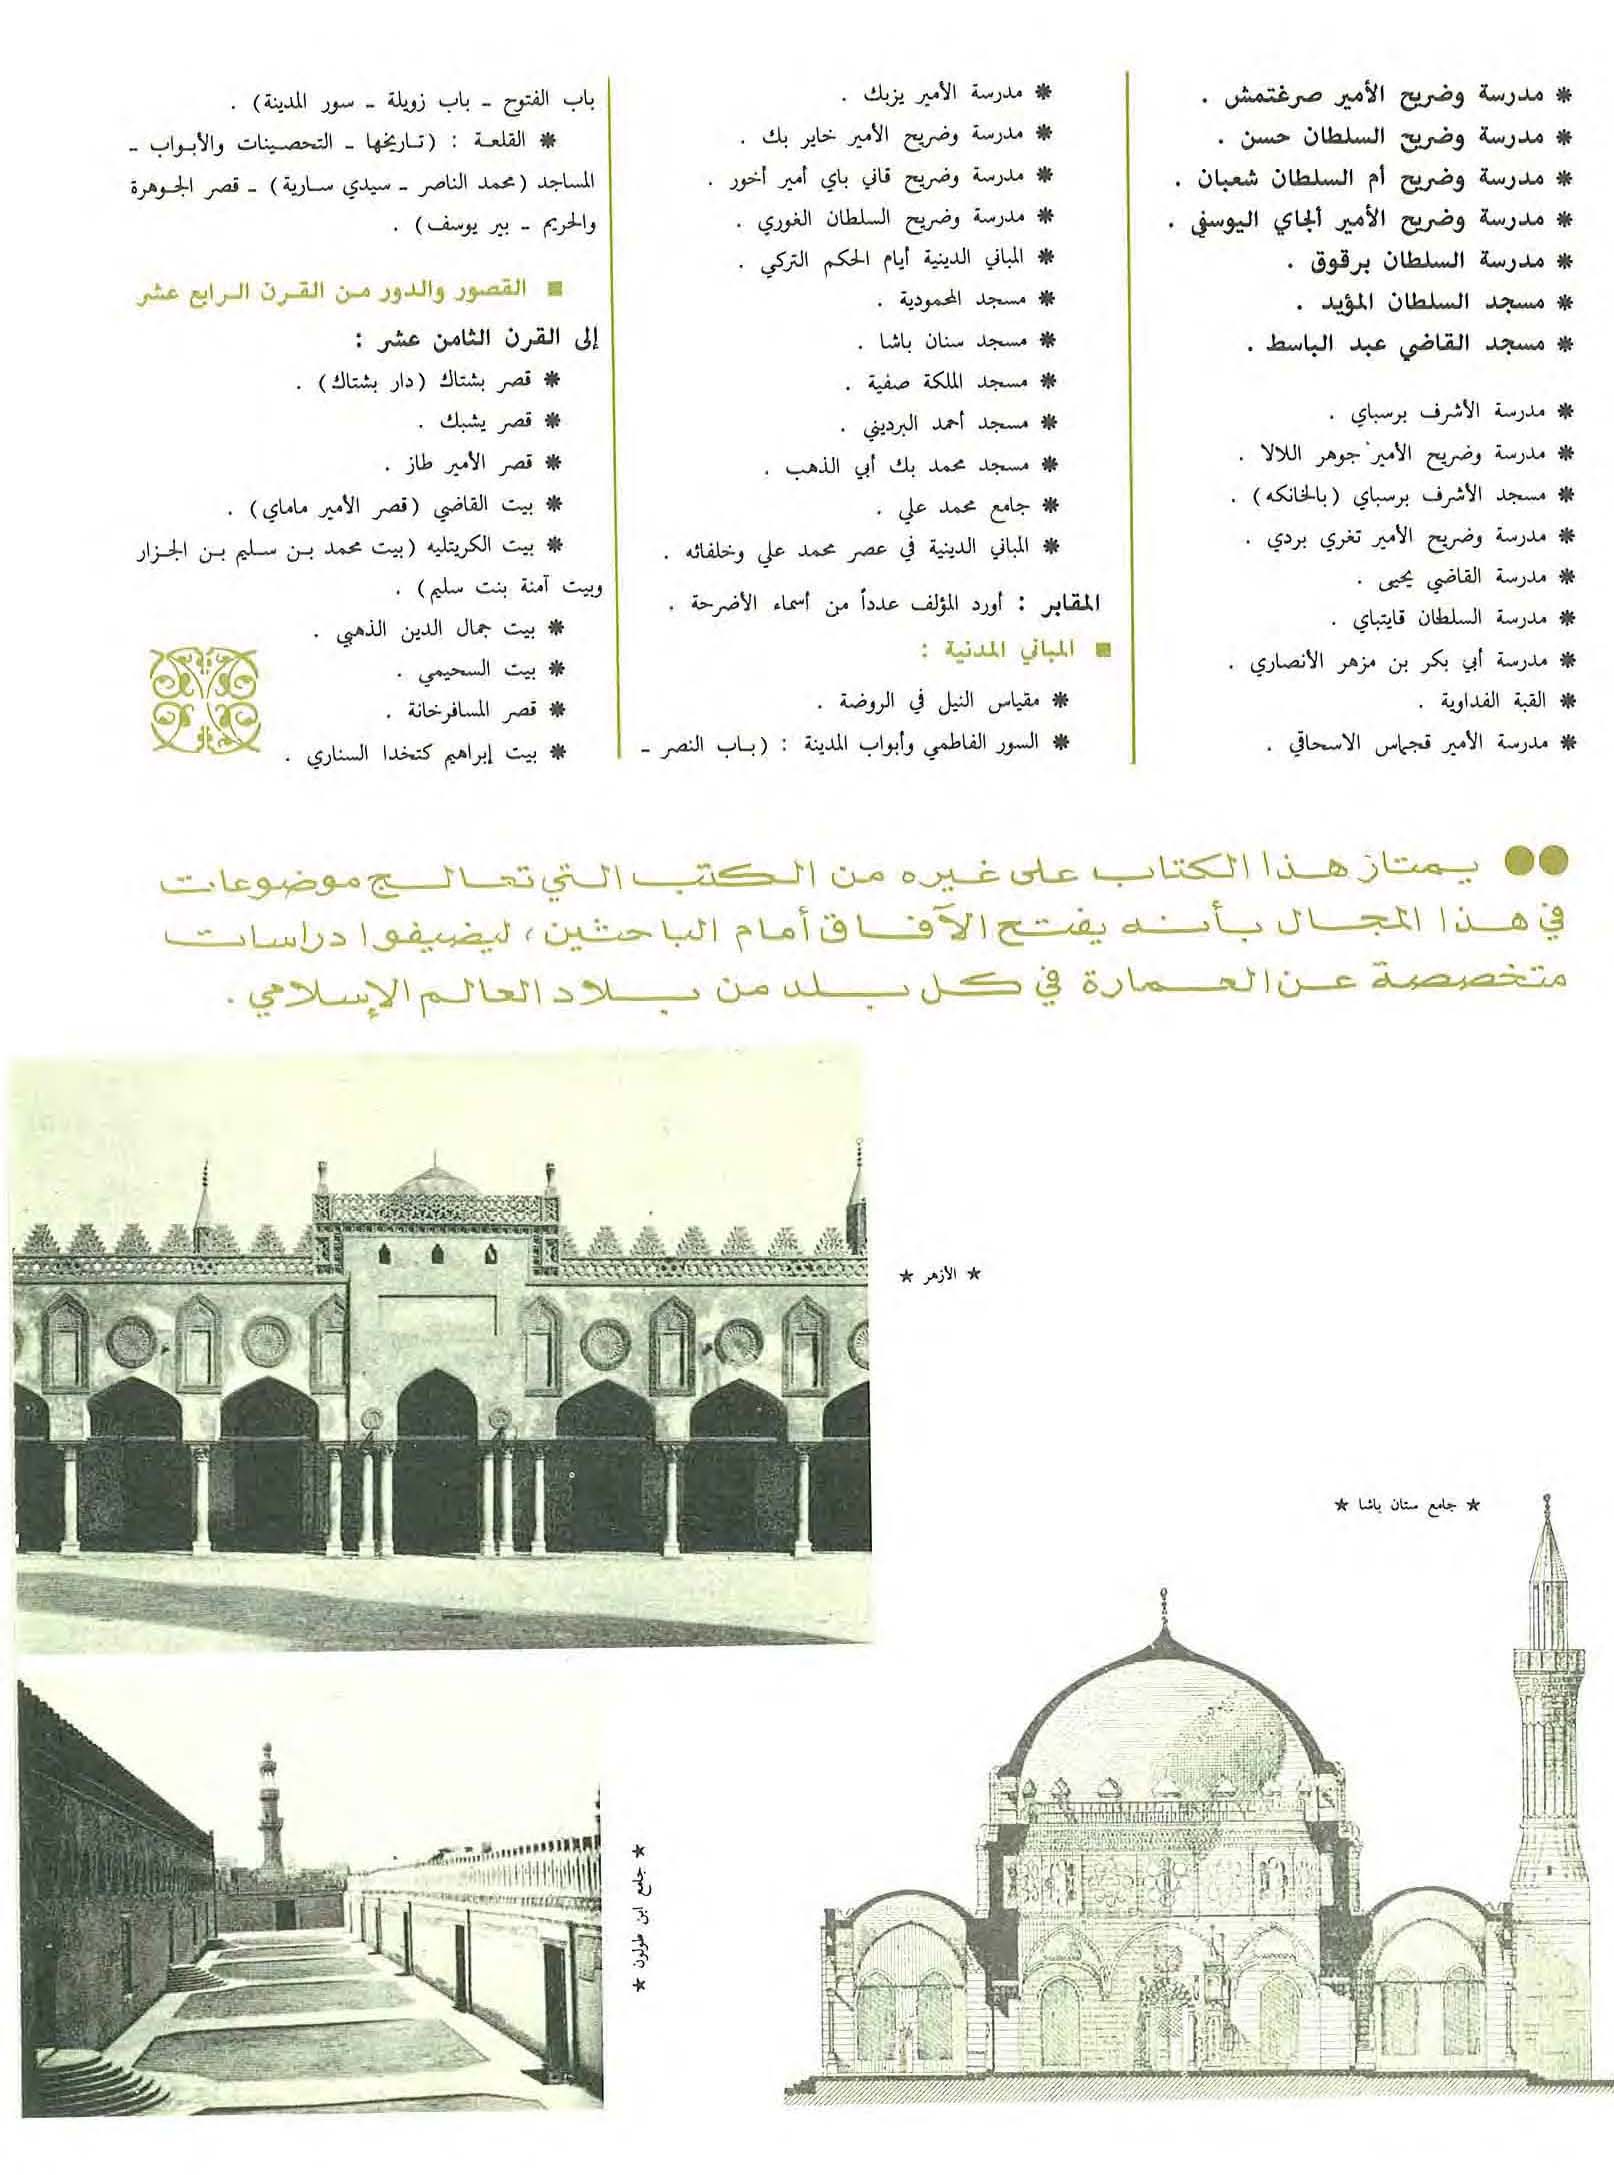 * مدرسة وضريح الأمير صرغتمش .
* مدرسة وضريح السلطان حسن .
* مدرسة وضريح أم السلطان شعبان .
* مدرسة وضريح الأمير ألجاي اليوسفي .
* مدرسة السلطان برقوق .
* مسجد السلطان المؤيد .
* مسجد القاضي عبد الباسط .
* مدرسة الأشرف برسباي .
* مدرسة وضريح الأمير جوهر اللالا .
* مسجد الأشرف برسباي (بالخانكه) .
* مدرسة وضريح الأمير تغري بردي .
* مدرسة القاضي يحيى .
* مدرسة السلطان قايتباي .
* مدرسة أبي بكر بن مزهر الأنصاري .
* القبة الفداوية .
* مدرسة الأمير قجماس الاسحاقي .
* مدرسة الأمير يزبك .
* مدرسة وضريح الأمير خاير بك .
* مدرسة وضريح قاني باي أمير أخور .
* مدرسة وضريح السلطان الغوري .
* المباني الدينية أيام الحكم التركي .
* مسجد المحمودية .
* مسجد سنان باشا .
* مسجد الملكة صفية .
* مسجد أحمد البرديني .
* مسجد محمد بك أبي الذهب .
* جامع محمد علي .
* المباني الدينية في عصر محمد علي وخلفائه .
المقابر : أورد المؤلف عدداً من أسماء الأضرحة .
■ المباني المدنية :
* مقياس النيل في الروضة .
* السور الفاطمي وأبواب المدينة : (باب النصر –
باب الفتوح – باب زويلة – سور المدينة) .
* القلعة : (تاريخها – التحصينات والأبواب –
المساجد (محمد الناصر – سيدي سارية) – قصر الجوهرة
والحريم – بير يوسف) .
■ القصور والدور من القرن الرابع عشر
إلى القرن الثامن عشر :
* قصر بشتاك (دار بشتاك) .
* قصر يشبك .
* قصر الأمير طاز .
* بيت القاضي (قصر الأمير ماماي) .
* بيت الكريتليه (بيت محمد بن سليم بن الجزار
وبيت آمنة بنت سليم) .
* بيت جمال الدين الذهبي .
* بيت السحيمي .
* قصر المسافرخانة .
* بيت إبراهيم كتخدا السناري .
●● يمتاز هذا الكتاب على غيره من الكتب التي تعالج موضوعات
في هذا المجال بأنه يفتح الآفاق أمام الباحثين، ليضيفوا دراسات
متخصصة عن العمارة في كل بلد من بلاد العالم الإسلامي .
★ الأزهر ★
★ جامع سنان باشا ★
★ جامع ابن طولون ★